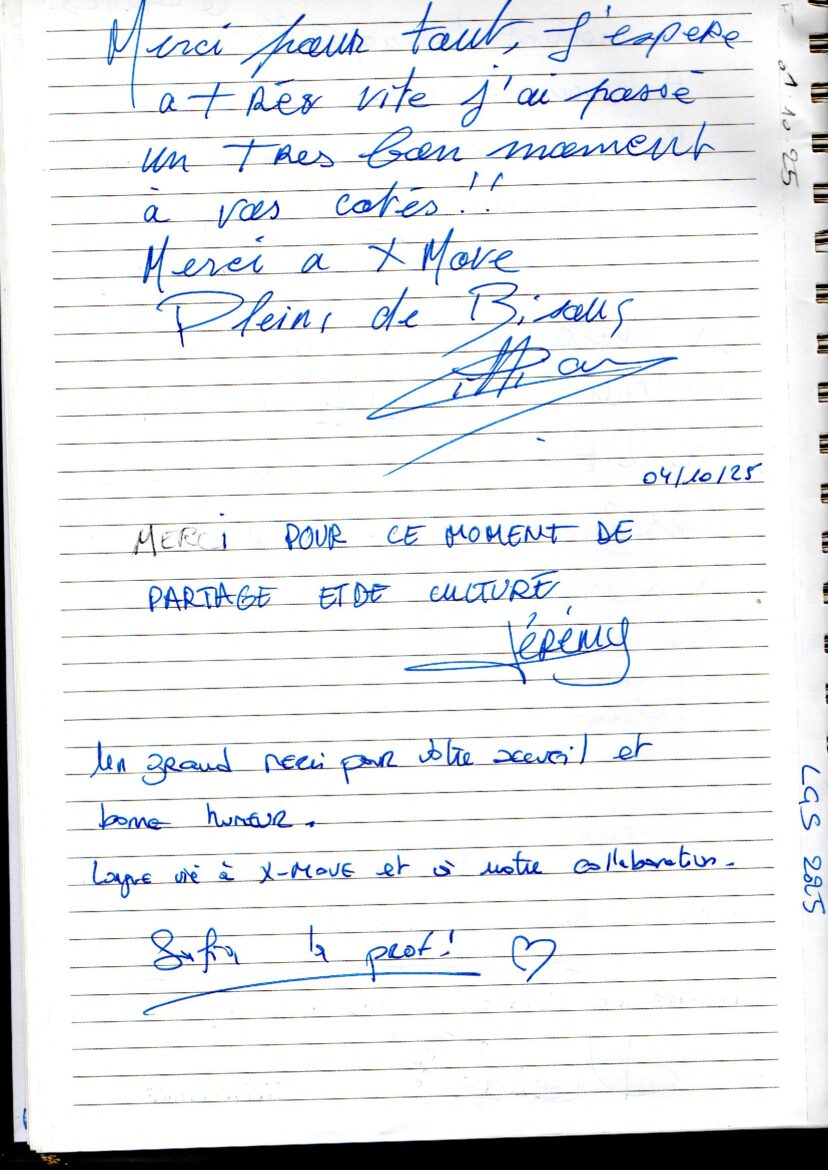 Merci pour tout, j'espere
a tRés vite j'ai passé
un TRes bon moment
à vos cotés !!
Merci a X Move
Pleins de Bisous
04/10/25
MERCI POUR CE MOMENT DE
PARTAGE ET DE CULTURE
JÉRÉMY
Un grand merci pour votre accueil et
bonne humeur.
Longue vie à X-MOVE et à notre collaboration.
la prof! ♡
01.10.25
LGS 2025